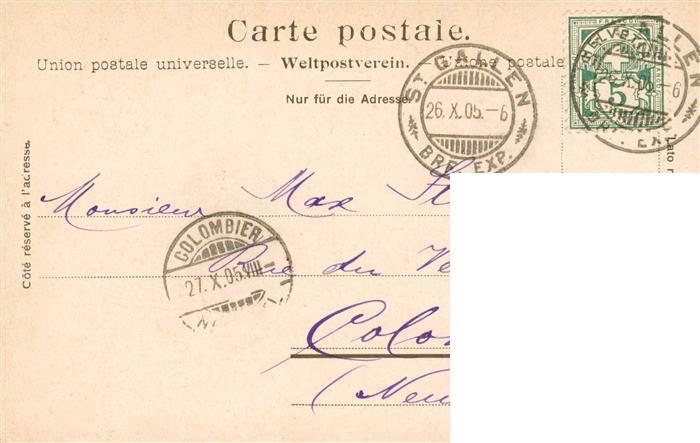 Carte postale.
Union postale universelle. — Weltpostverein. — Unione postale
Nur für die Adresse
Côté réservé à l'adresse.
Lato r
ST GALLEN
26. X. 05. – 6
BRF. EXP.
ALLEN
6
EXP.
5
Monsieur Max
Rue du Ve
Colo
(Neu
COLOMBIER
27. X. 05. VIII